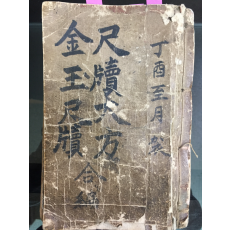 丁酉至月
尺牘大方
金玉尺牘
合編